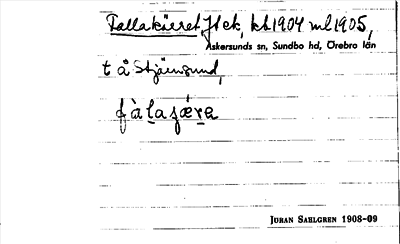 Tallakärret Hek, kb1904 ml1905,
Askersunds sn, Sundbo hd, Örebro län
t å Stjärnsund,
JÖRAN SAHLGREN 1908-09